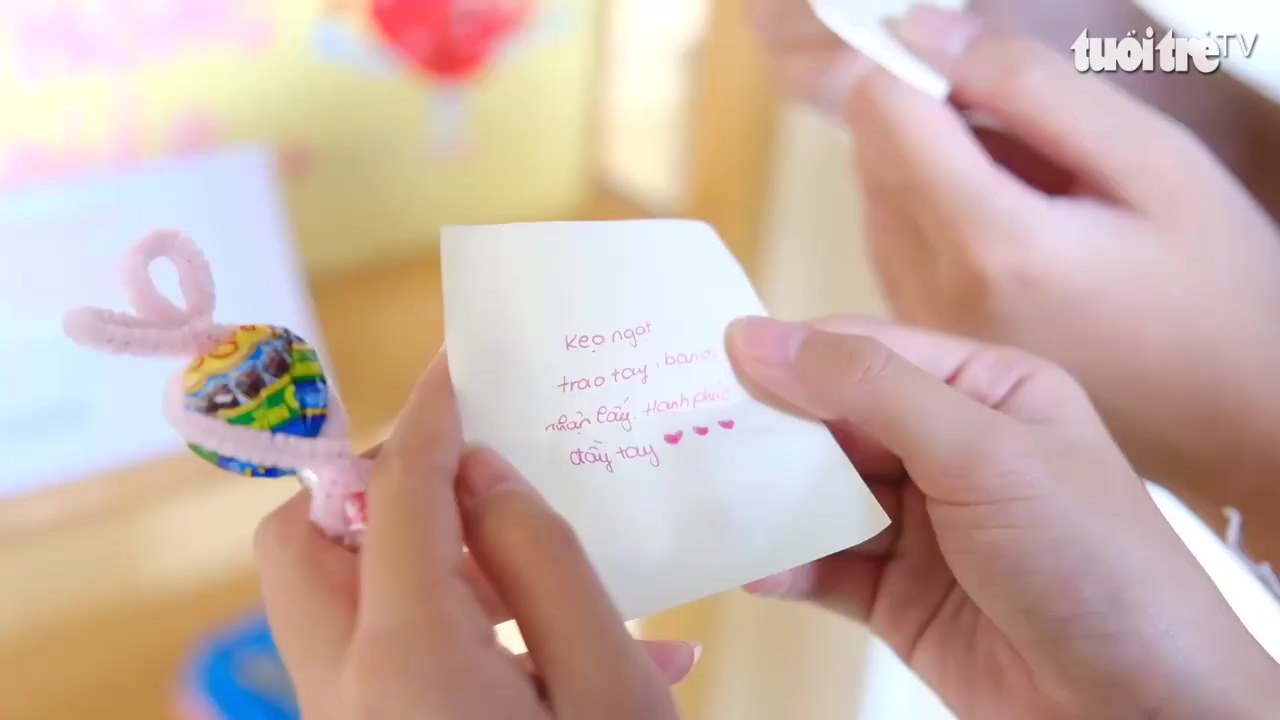 tuổi trẻ TV
Kẹo ngọt
trao tay, bạn
nhận lấy. Hạnh phúc
đầy tay